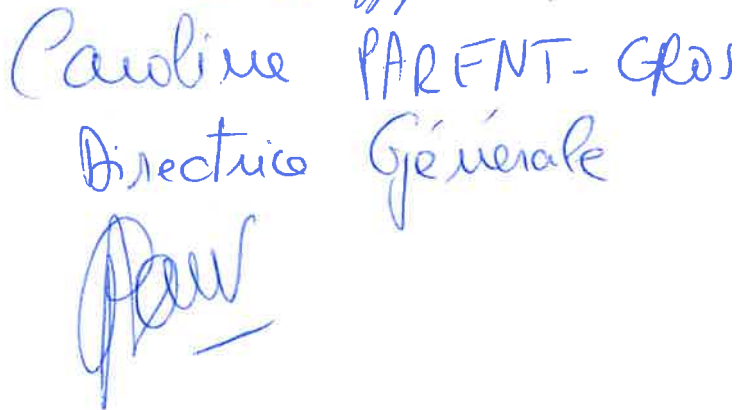 Caroline PARENT-GROS
Directrice Générale